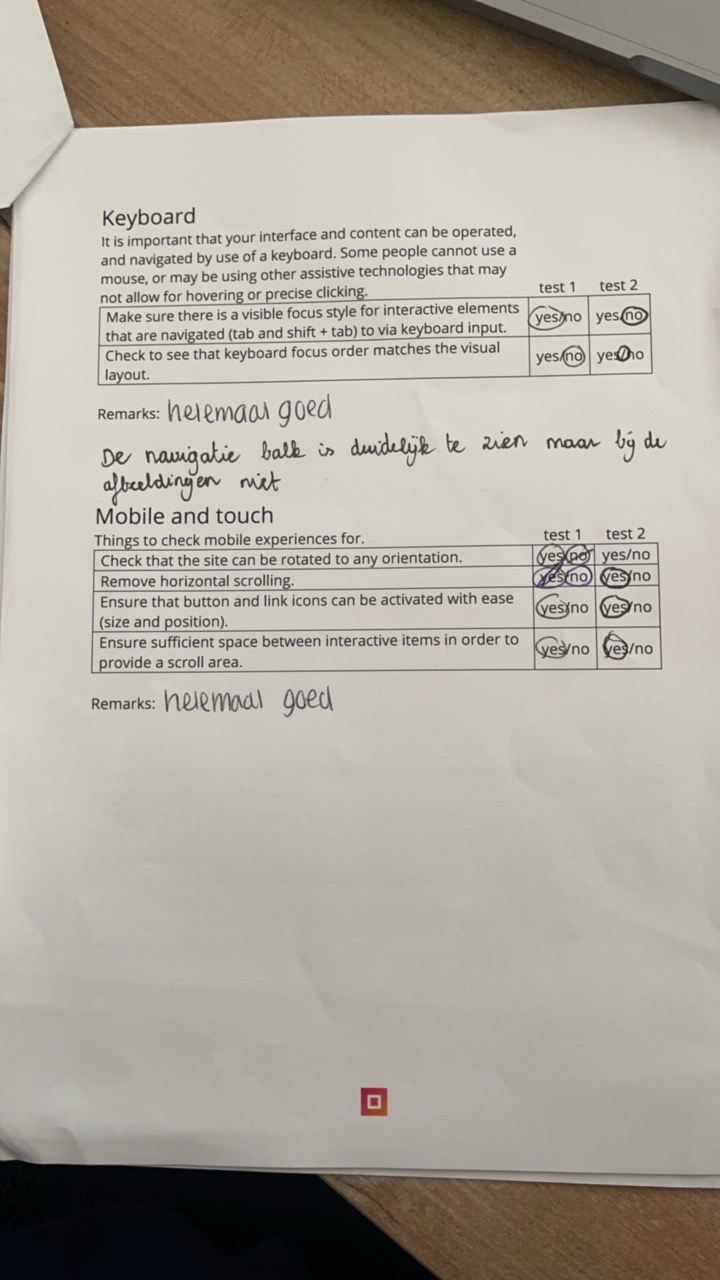 Keyboard
It is important that your interface and content can be operated,
and navigated by use of a keyboard. Some people cannot use a
mouse, or may be using other assistive technologies that may
not allow for hovering or precise clicking.
test 1 test 2
Make sure there is a visible focus style for interactive elements
that are navigated (tab and shift + tab) to via keyboard input.
yes/no yes/no
Check to see that keyboard focus order matches the visual
layout.
yes/no yes/no
Remarks: helemaal goed
De navigatie balk is duidelijk te zien maar bij de
afbeeldingen niet
Mobile and touch
Things to check mobile experiences for.
test 1 test 2
Check that the site can be rotated to any orientation. yes/no yes/no
Remove horizontal scrolling. yes/no yes/no
Ensure that button and link icons can be activated with ease
(size and position).
yes/no yes/no
Ensure sufficient space between interactive items in order to
provide a scroll area.
yes/no yes/no
Remarks: helemaal goed